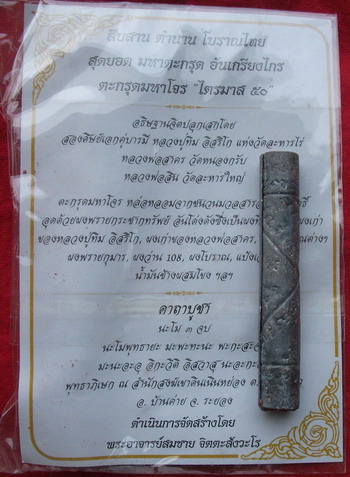 สืบสาน ตำนาน โบราณไทย
สุดยอด มหาตะกรุด อันเกรียงไกร
ตะกรุดมหาโจร "ไตรมาส ๕๐"
อธิษฐานจิตปลุกเสกโดย
สองศิษย์เอกคู่บารมี หลวงปู่ทิม อิสริโก แห่งวัดละหารไร่
หลวงพ่อสาคร วัดหนองกรับ
หลวงพ่อสิน วัดละหารใหญ่
ตะกรุดมหาโจร หล่อหลอมจากชนวนมวลสาร
อุดด้วยผงพรายกระชากทรัพย์ อันโด่งดังซึ่งเป็นผง
ของหลวงปู่ทิม อิสริโก, ผงเก่าของหลวงพ่อสาคร,
ผงพรายกุมาร, ผงว่าน 108, ผงโบราณ,
น้ำมันช้างผสมโขลง ฯลฯ
คาถาบูชา
นะโม ๓ จบ
นะโมพุทธายะ มะพะทะนะ
มะนะอะอุ อิกะวิติ อิสวาสุ
พุทธาภิเษก ณ สำนักสงฆ์เขาดินเนินหย่อง ต.
อ. บ้านค่าย จ. ระยอง
ดำเนินการจัดสร้างโดย
พระอาจารย์สมชาย จิตตะสังวะโร